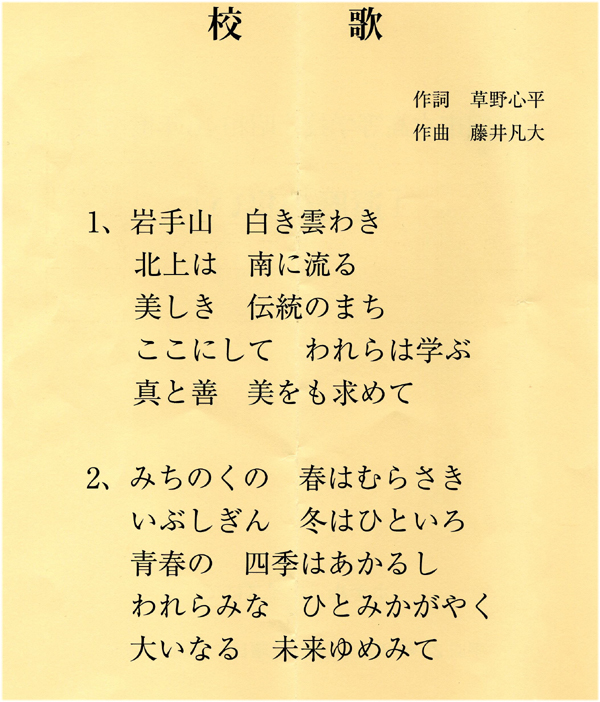 校　歌
作詞　草野心平
作曲　藤井凡大
1、岩手山　白き雲わき
北上は　南に流る
美しき　伝統のまち
ここにして　われらは学ぶ
真と善　美をも求めて
2、みちのくの　春はむらさき
いぶしぎん　冬はひといろ
青春の　四季はあかるし
われらみな　ひとみかがやく
大いなる　未来ゆめみて